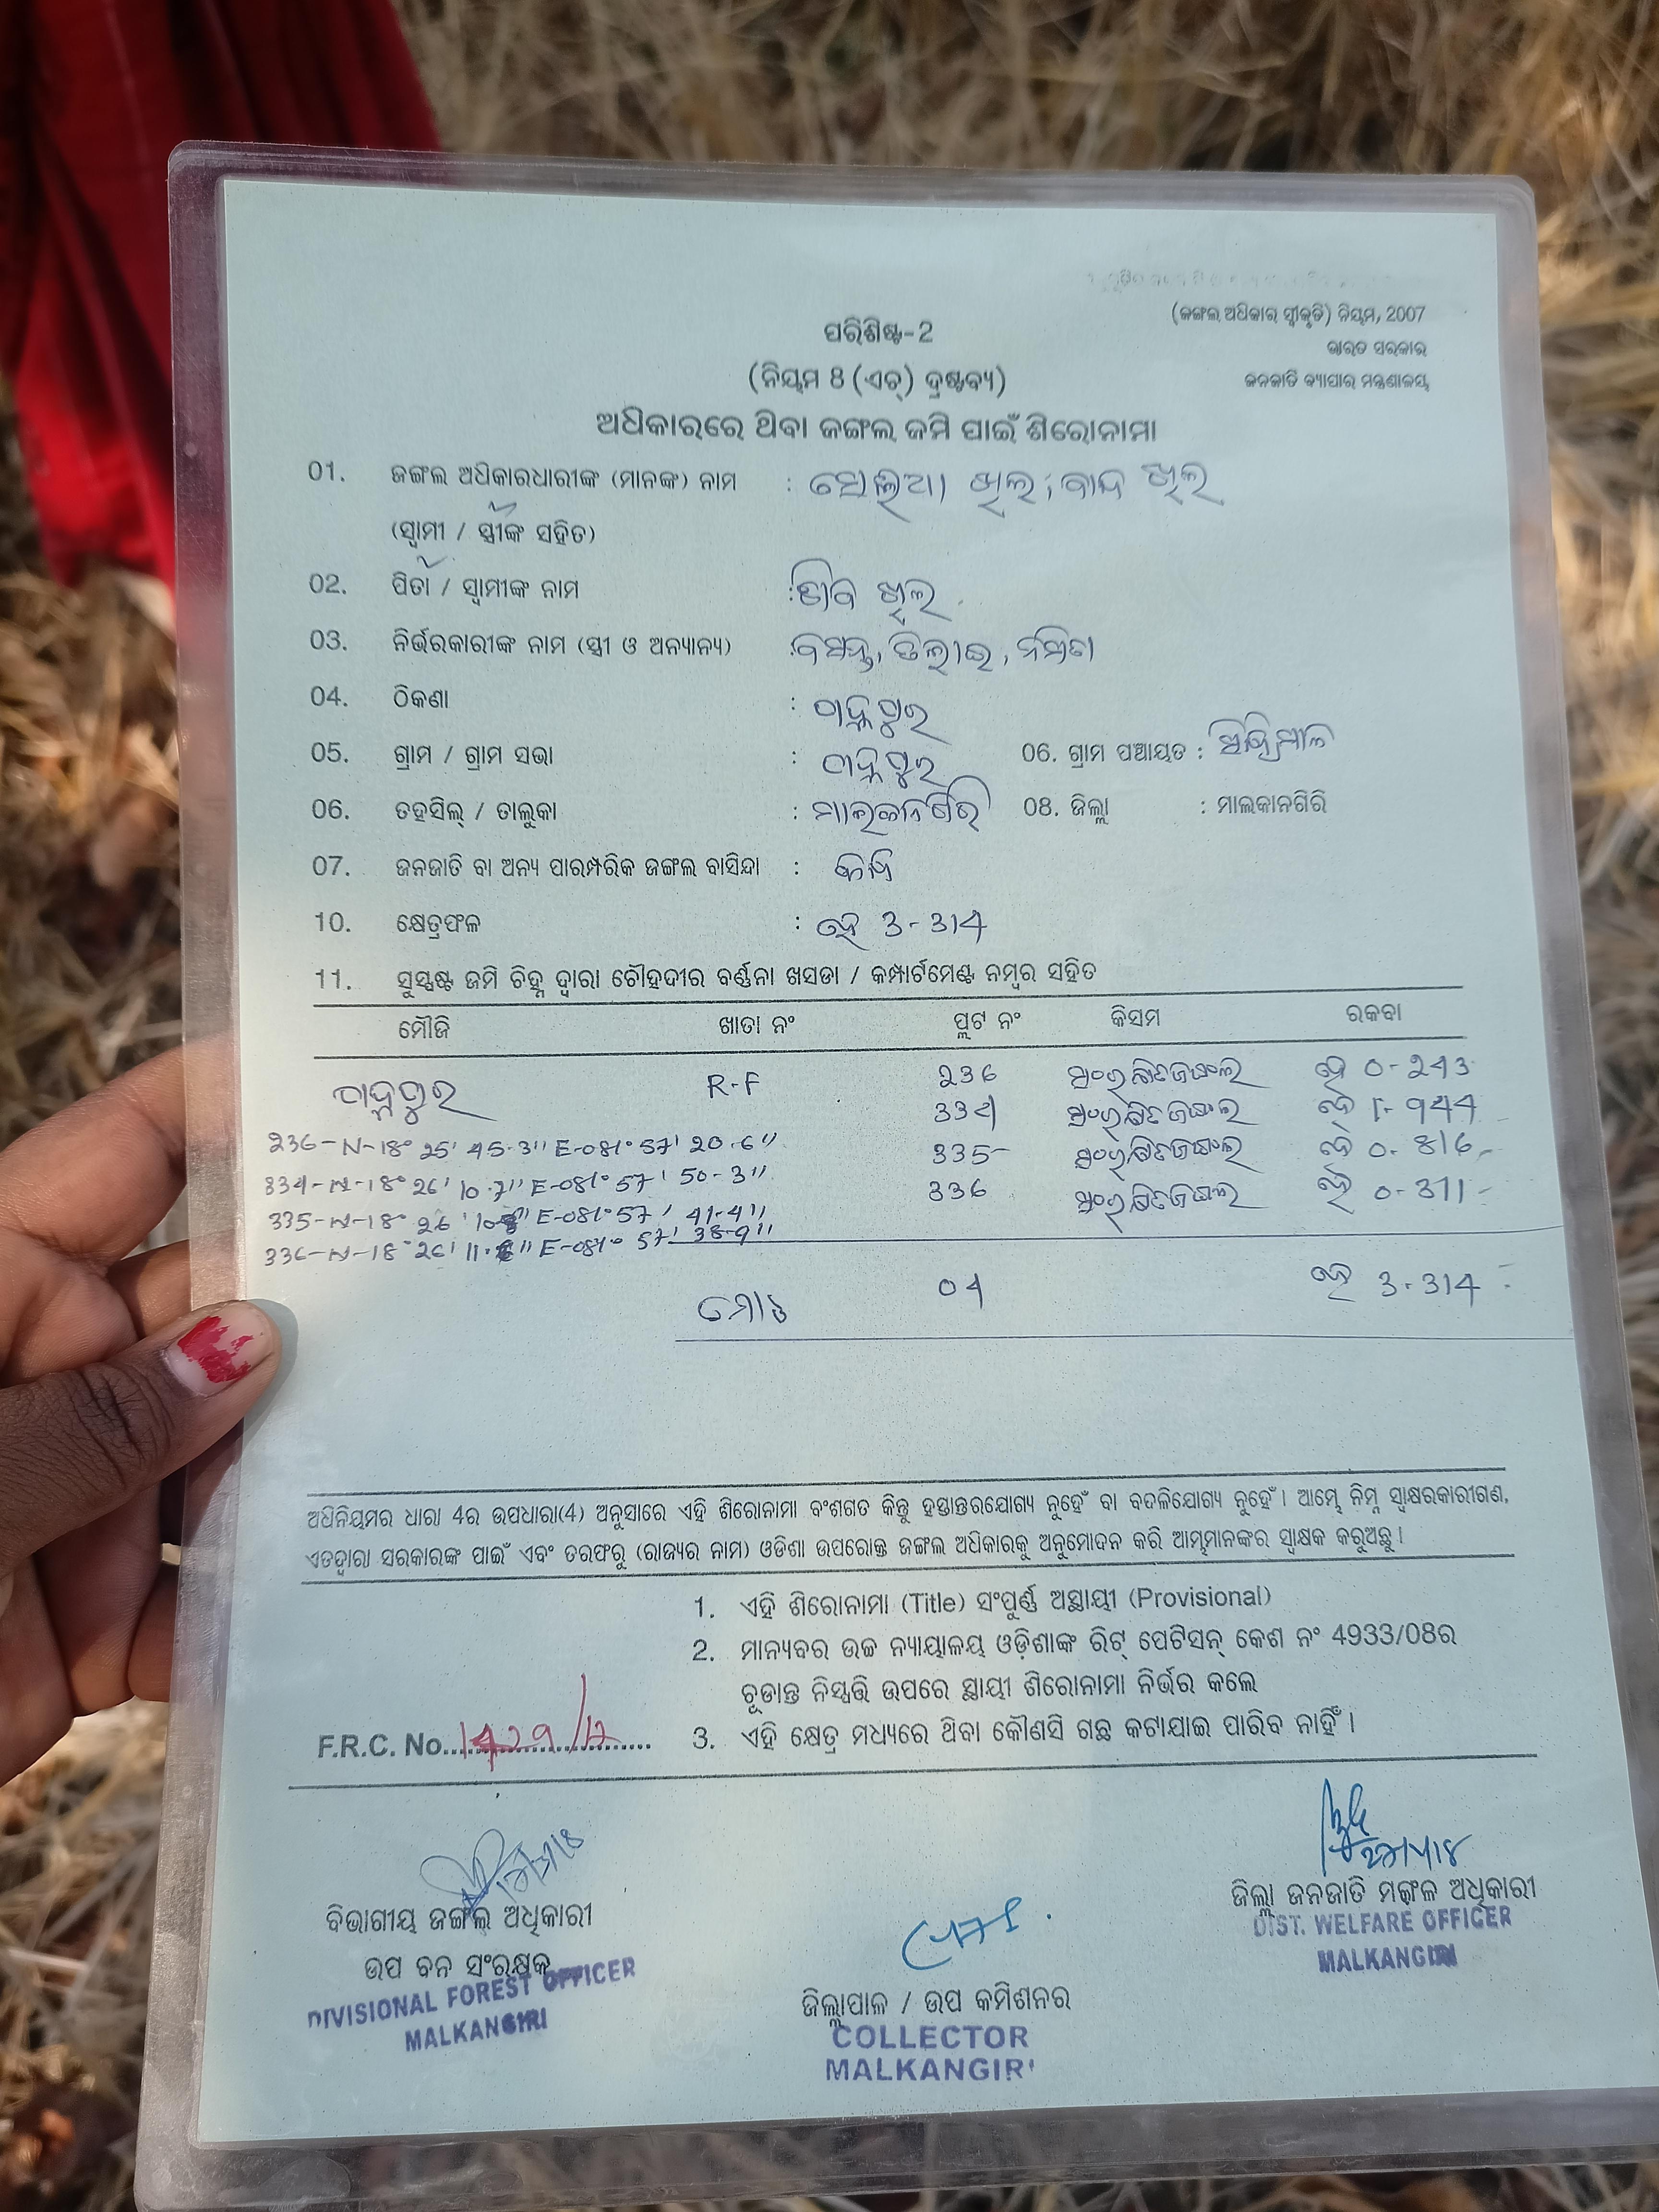 (ଜଙ୍ଗଲ ଅଧିକାର ସ୍ୱୀକୃତି) ନିୟମ, 2007
ଭାରତ ସରକାର
ଜନଜାତି ବ୍ୟାପାର ମନ୍ତ୍ରଣାଳୟ
ପରିଶିଷ୍ଟ-2
(ନିୟମ 8 (ଏଚ୍) ଦ୍ରଷ୍ଟବ୍ୟ)
ଅଧିକାରରେ ଥିବା ଜଙ୍ଗଲ ଜମି ପାଇଁ ଶିରୋନାମା
01. ଜଙ୍ଗଲ ଅଧିକାରଧାରୀଙ୍କ (ମାନଙ୍କ) ନାମ :
(ସ୍ୱାମୀ / ସ୍ତ୍ରୀଙ୍କ ସହିତ)
02. ପିତା / ସ୍ୱାମୀଙ୍କ ନାମ :
03. ନିର୍ଭରକାରୀଙ୍କ ନାମ (ସ୍ତ୍ରୀ ଓ ଅନ୍ୟାନ୍ୟ) :
04. ଠିକଣା :
05. ଗ୍ରାମ / ଗ୍ରାମ ସଭା : 06. ଗ୍ରାମ ପଞ୍ଚାୟତ :
06. ତହସିଲ୍ / ତାଲୁକା : ମାଲକାନଗିରି 08. ଜିଲ୍ଲା : ମାଲକାନଗିରି
07. ଜନଜାତି ବା ଅନ୍ୟ ପାରମ୍ପରିକ ଜଙ୍ଗଲ ବାସିନ୍ଦା :
10. କ୍ଷେତ୍ରଫଳ : ହେ 3-314
11. ସୁସ୍ପଷ୍ଟ ଜମି ଚିହ୍ନ ଦ୍ୱାରା ଚୌହଦୀର ବର୍ଣ୍ଣନା ଖସଡା / କମ୍ପାର୍ଟମେଣ୍ଟ ନମ୍ବର ସହିତ
ମୌଜି ଖାତା ନଂ ପ୍ଲଟ ନଂ କିସମ ରକବା
R-F 236 ହେ 0-243
334 ହେ 1-944
236-N-18° 25' 45.3" E-081° 57' 20.6"
335 ହେ 0-816
334-N-18° 26' 10.7" E-081° 57' 50-3"
336 ହେ 0-311
335-N-18° 26' E-081° 57' 41-4"
336-N-18° 26' E-081° 57' 38-9"
ମୋଟ 04 ହେ 3-314
ଅଧିନିୟମର ଧାରା 4ର ଉପଧାରା(4) ଅନୁସାରେ ଏହି ଶିରୋନାମା ବଂଶଗତ କିନ୍ତୁ ହସ୍ତାନ୍ତରଯୋଗ୍ୟ ନୁହେଁ ବା ବଦଳିଯୋଗ୍ୟ ନୁହେଁ। ଆମ୍ଭେ ନିମ୍ନ ସ୍ୱାକ୍ଷରକାରୀଗଣ,
ଏତଦ୍ୱାରା ସରକାରଙ୍କ ପାଇଁ ଏବଂ ତରଫରୁ (ରାଜ୍ୟର ନାମ) ଓଡିଶା ଉପରୋକ୍ତ ଜଙ୍ଗଲ ଅଧିକାରକୁ ଅନୁମୋଦନ କରି ଆମ୍ଭମାନଙ୍କର ସ୍ୱାକ୍ଷକ କରୁଅଛୁ।
1. ଏହି ଶିରୋନାମା (Title) ସଂପୁର୍ଣ୍ଣ ଅସ୍ଥାୟୀ (Provisional)
2. ମାନ୍ୟବର ଉଚ୍ଚ ନ୍ୟାୟାଳୟ ଓଡ଼ିଶାଙ୍କ ରିଟ୍ ପେଟିସନ୍ କେଶ ନଂ 4933/08ର
ଚୂଡାନ୍ତ ନିସ୍ପତ୍ତି ଉପରେ ସ୍ଥାୟୀ ଶିରୋନାମା ନିର୍ଭର କଲେ
F.R.C. No. 3. ଏହି କ୍ଷେତ୍ର ମଧ୍ୟରେ ଥିବା କୌଣସି ଗଛ କଟାଯାଇ ପାରିବ ନାହିଁ।
ବିଭାଗୀୟ ଜଙ୍ଗଲ ଅଧିକାରୀ
ଉପ ବନ ସଂରକ୍ଷକ
DIVISIONAL FOREST OFFICER
MALKANGIRI
ଜିଲ୍ଲାପାଳ / ଉପ କମିଶନର
COLLECTOR
MALKANGIRI
ଜିଲ୍ଲା ଜନଜାତି ମଙ୍ଗଳ ଅଧିକାରୀ
DIST. WELFARE OFFICER
MALKANGIRI